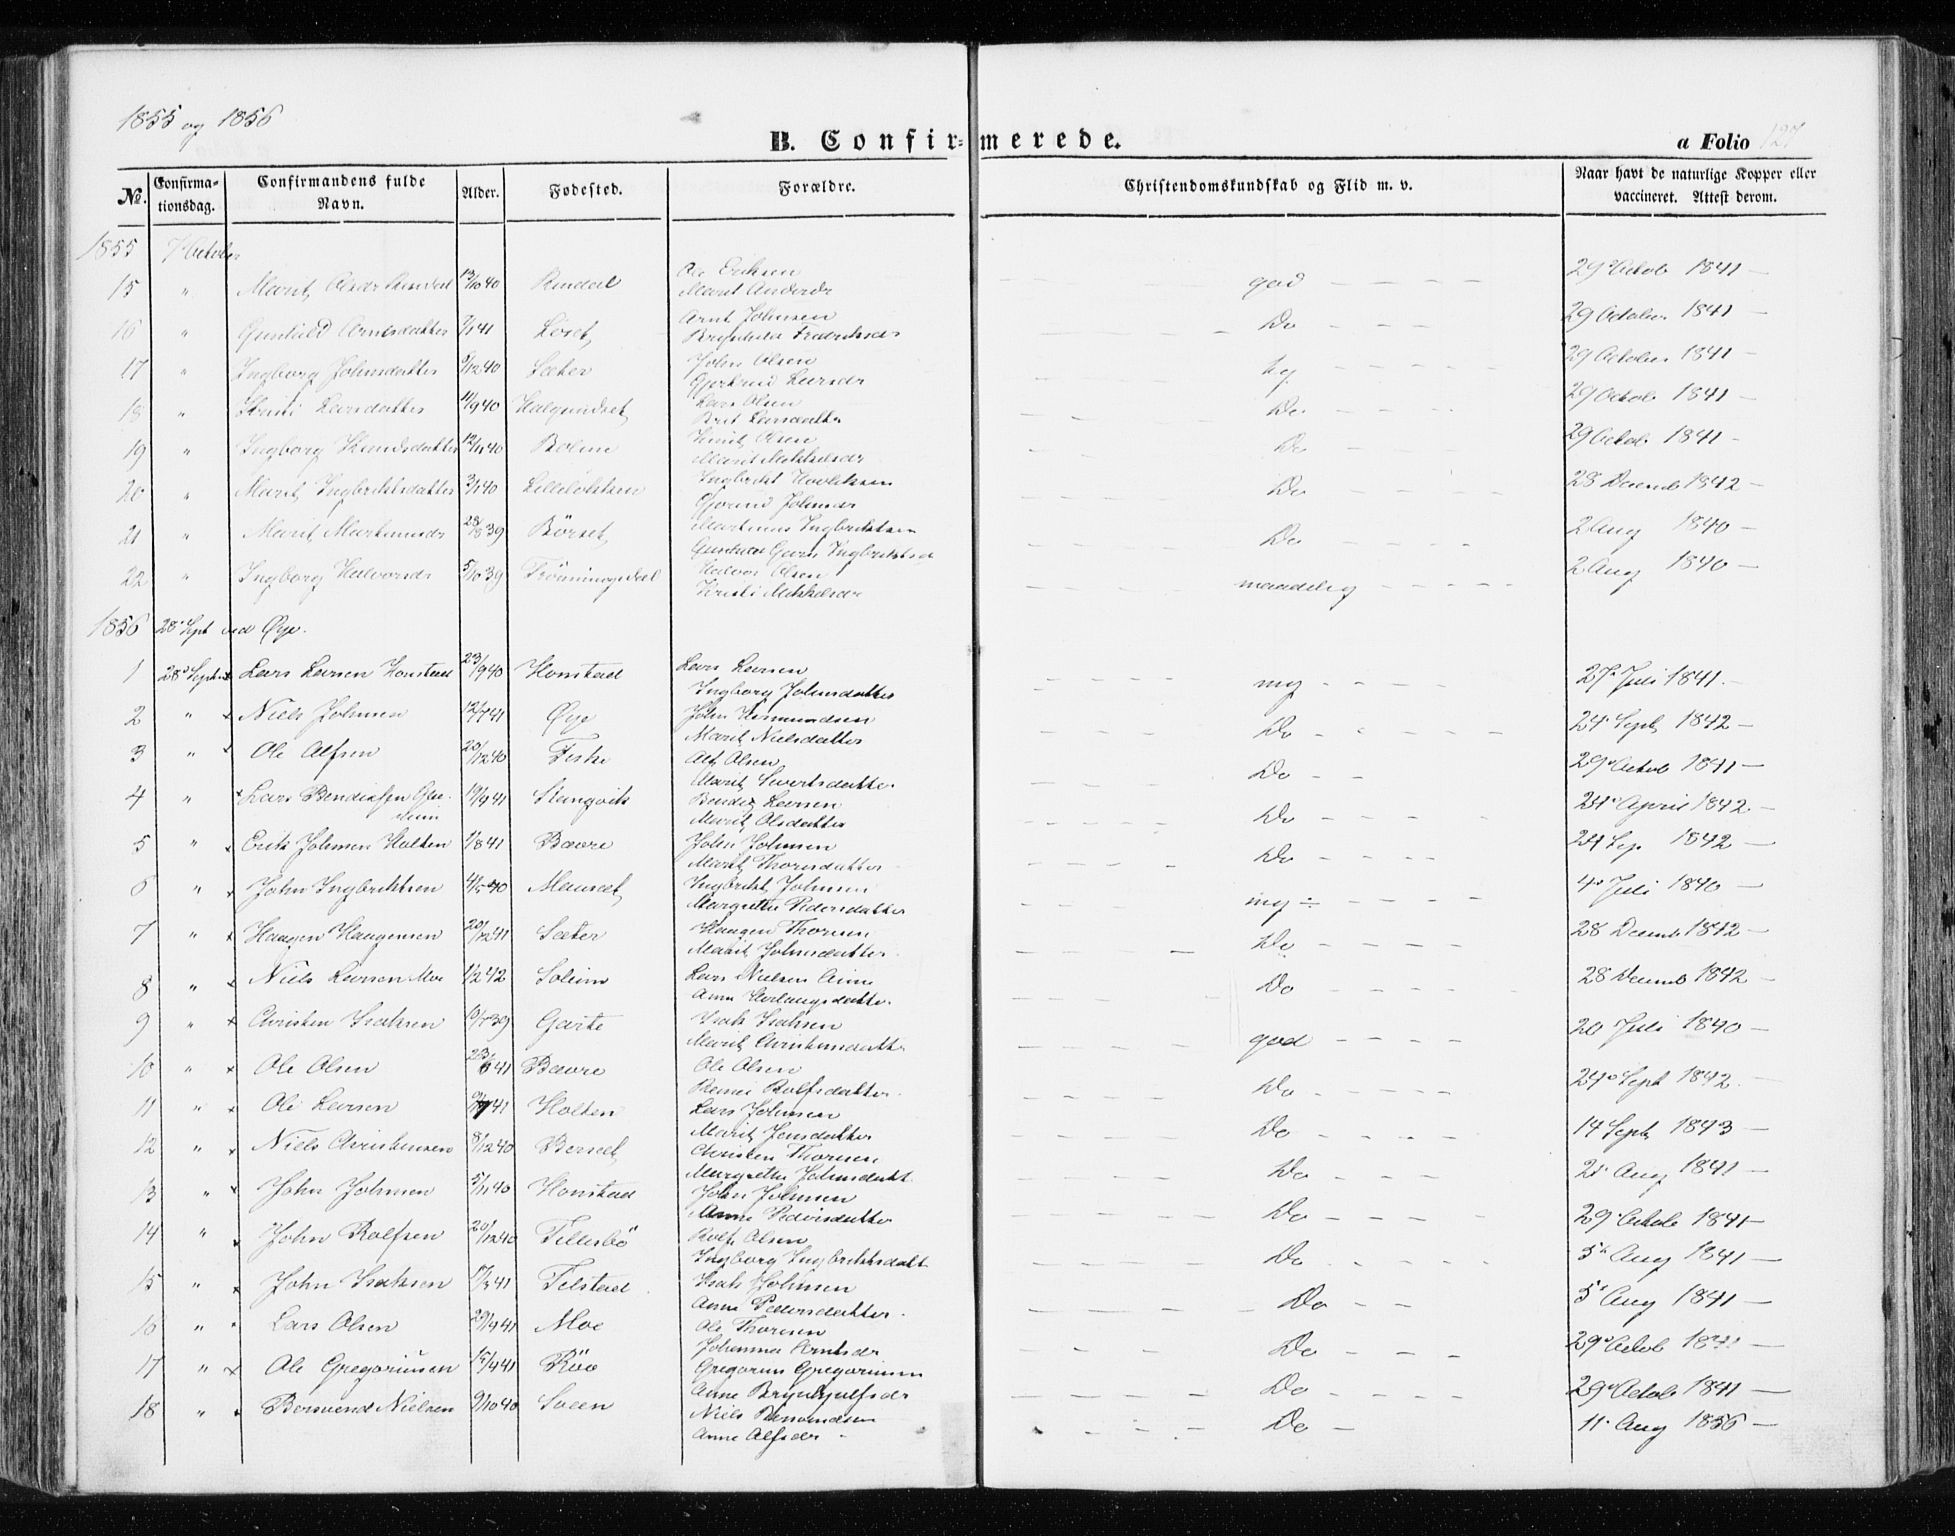 1855 og 1856
B. Confirmerede.
a Folio 127
№. Confirmationsdag. Confirmandens fulde Navn. Alder. Fødested. Forældre. Christendomskundskab og Flid m. v. Naar havt de naturlige Kopper eller vaccineret. Attest derom.
1855 7 October
15 " Marit Olsdr Rindal 13/10 40 Rindal Ole Eriksen god 29 Octob 1841
Marit Andersdr
16 " Gunhild Arntsdatter 7/1 41 Løset Arnt Johnsen Do 29 October 1841
Brynhilda Fredriksdr
17 " Ingborg Johnsdatter 9/12 40 Sæter John Olsen 29 October 1841
Gjertrud Larsdr
18 " Larsdatter 11/9 40 Halgundset Lars Olsen Do 29 Octob 1841
Brit Larsdatter
19 " Ingborg Knudsdatter 12/11 40 Bolme Knut Olsen Do 29 Octob 1841
Marit Mikkelsdr
20 " Marit Ingbriktsdatter 3/1 40 Ingbrikt Do 28 Decemb 1842
Johnsdr
21 " Marit Martinusdr 28/8 39 Børset Martinus Ingbriktsen Do 2 Aug 1840
Ingbriktsd
22 " Ingborg Halvorsdr 5/10 39 Trønningsdal Halvor Olsen maadelig 2 Aug 1840
Kristi Mikkelsdr
1856 28 Sept ved Øye.
1 28 Sept x Lars Larsen Honstad 23/9 40 Honstad Lars Larsen mg 27 Juli 1841
Ingborg Johnsdatter
2 " x Niels Johnsen 12/7 41 Øye John Do 24 Sept 1842
Marit Nielsdatter
3 " x Ole Alfsen 20/12 40 Feske Alf Olsen Do 29 Octob 1841
Marit Sivertsdatter
4 " x Lars Bendixsen 19/9 41 Stangvik Bendix Larsen Do 24 April 1842
Marit Olsdatter
5 " x Erik Johnsen Holten 1/8 41 Bævre John Johnsen Do 24 Sep 1842
Marit Thoresdatter
6 " x John Ingbriktsen 4/5 40 Mauset Ingbrikt Johnsen mg ÷ 4 Juli 1840
Margrethe Pedersdatter
7 " x Haagen Haagensen 20/12 41 Sæter Haagen Thoresen Do 28 Decemb 1842
Marit Johnsdatter
8 " x Niels Larsen Moe 1/2 42 Solem Lars Nielsen Do 28 Decemb 1842
Anne
9 " x Christen Isaksen 10/7 39 Garte Isak Isaksen god 20 Juli 1840
Marit Christensdatt.
10 " x Ole Olsen 23/6 41 Bævre Ole Olsen Do 24 Sept 1842
Rolfsdatter
11 " x Ole Larsen 41 Holten Lars Johnsen Do 14 Sept 1843
Marit Jensdatter
12 " x Niels Christensen 8/12 40 Berset Christen Thoresen Do 21 Aug 1841
Margrethe Johnsdatt.
13 " x John Johnsen 5/11 40 Honstad John Johnsen Do 29 Octob 1841
Anne Pedersdatter
14 " x John Rolfsen 20/12 40 Tellesbø Rolf Olsen Do 5 Aug 1841
Ingborg Ingbriktsdatt
15 " x John Isaksen 17/3 41 Telstad Isak Johnsen Do 5 Aug 1841
Anne Pedersdatter
16 " x Lars Olsen 29/9 41 Moe Ole Thoresen Do 29 Octob 1841
Johanna Arntsdr
17 " x Ole Gregoriusen 15/4 41 Røv Gregorius Gregoriusen Do 29 Octob 1841
Anne Brynhjulfsdr
18 " x Bersvend Nielsen 9/10 40 Sveen Niels Bersvendsen Do 11 Aug 1856
Anne Alfsdr